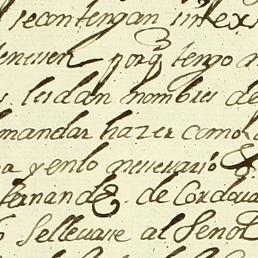 secontengan sin ex
tenesen porq tengo
lesdan nombres de
mandar hazer como
y enlo nesesario
Fernandez de Cordova
sellevase al Señor